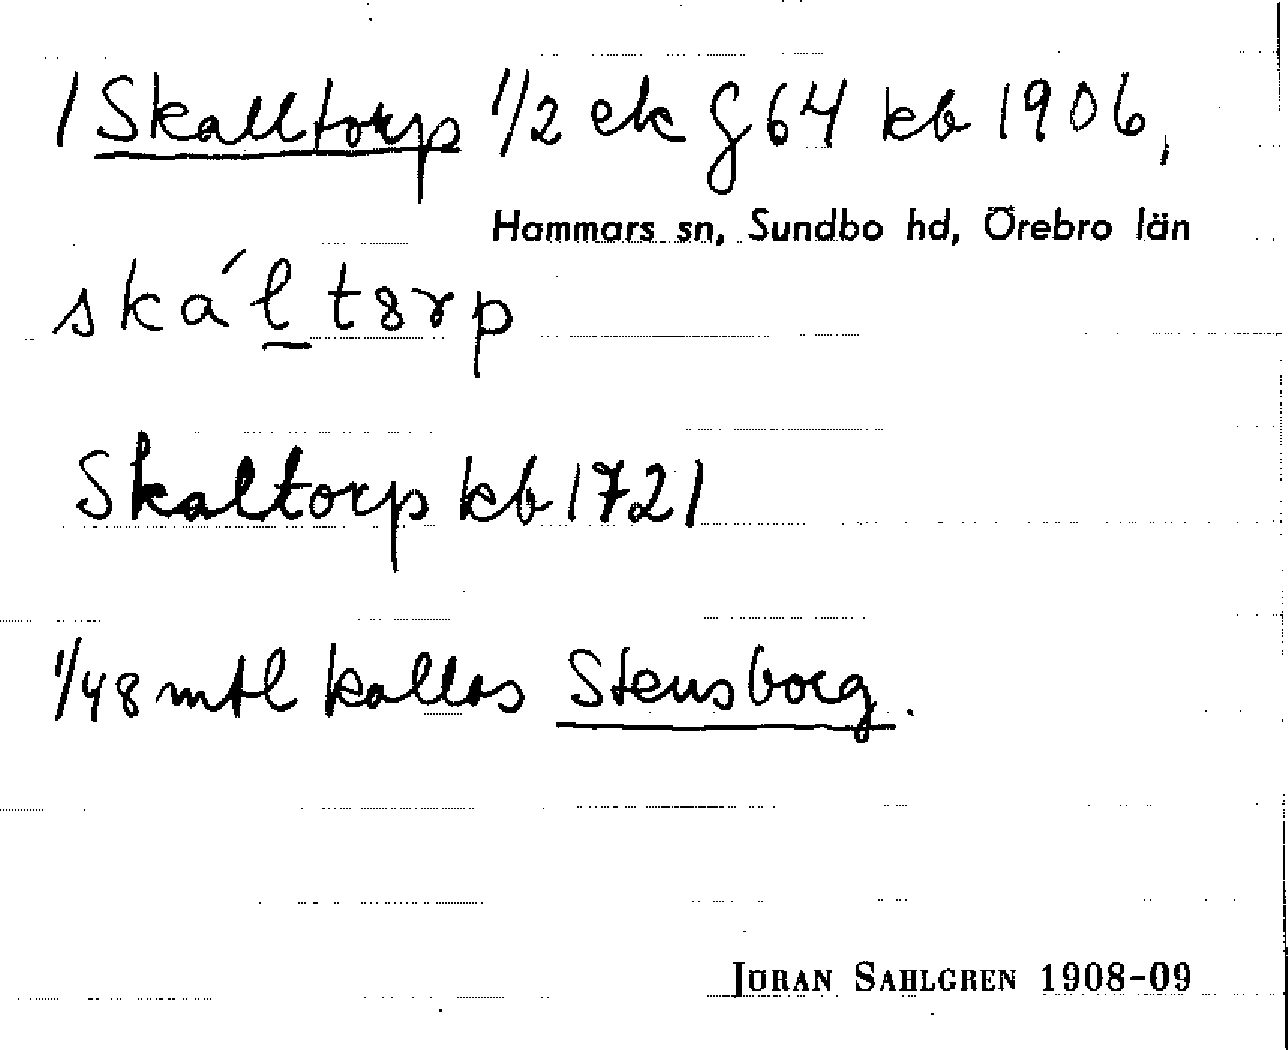 1 Skalltorp 1/2 ek g 64 kb 1906,
Hammars sn, Sundbo hd, Örebro län
ská´l t8rp
Skaltorp kb 1721
1/48 mtl kallas Stensborg.
JÖRAN SAHLGREN 1908-09